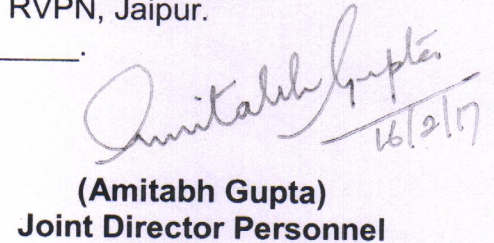 RVPN, Jaipur.
________.
Amitabh Gupta
16/2/17
(Amitabh Gupta)
Joint Director Personnel